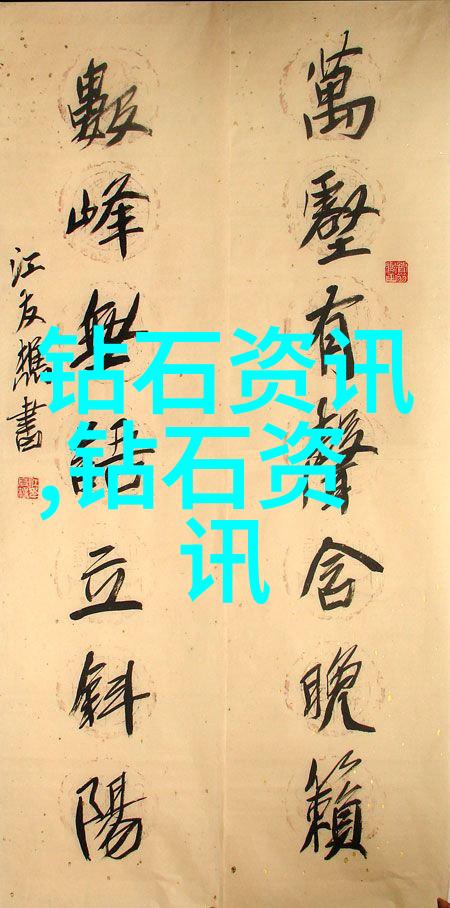 萬壑有聲含晚籟
數峰無語立斜陽
江友樵書
钻石资讯
,钻石资
讯